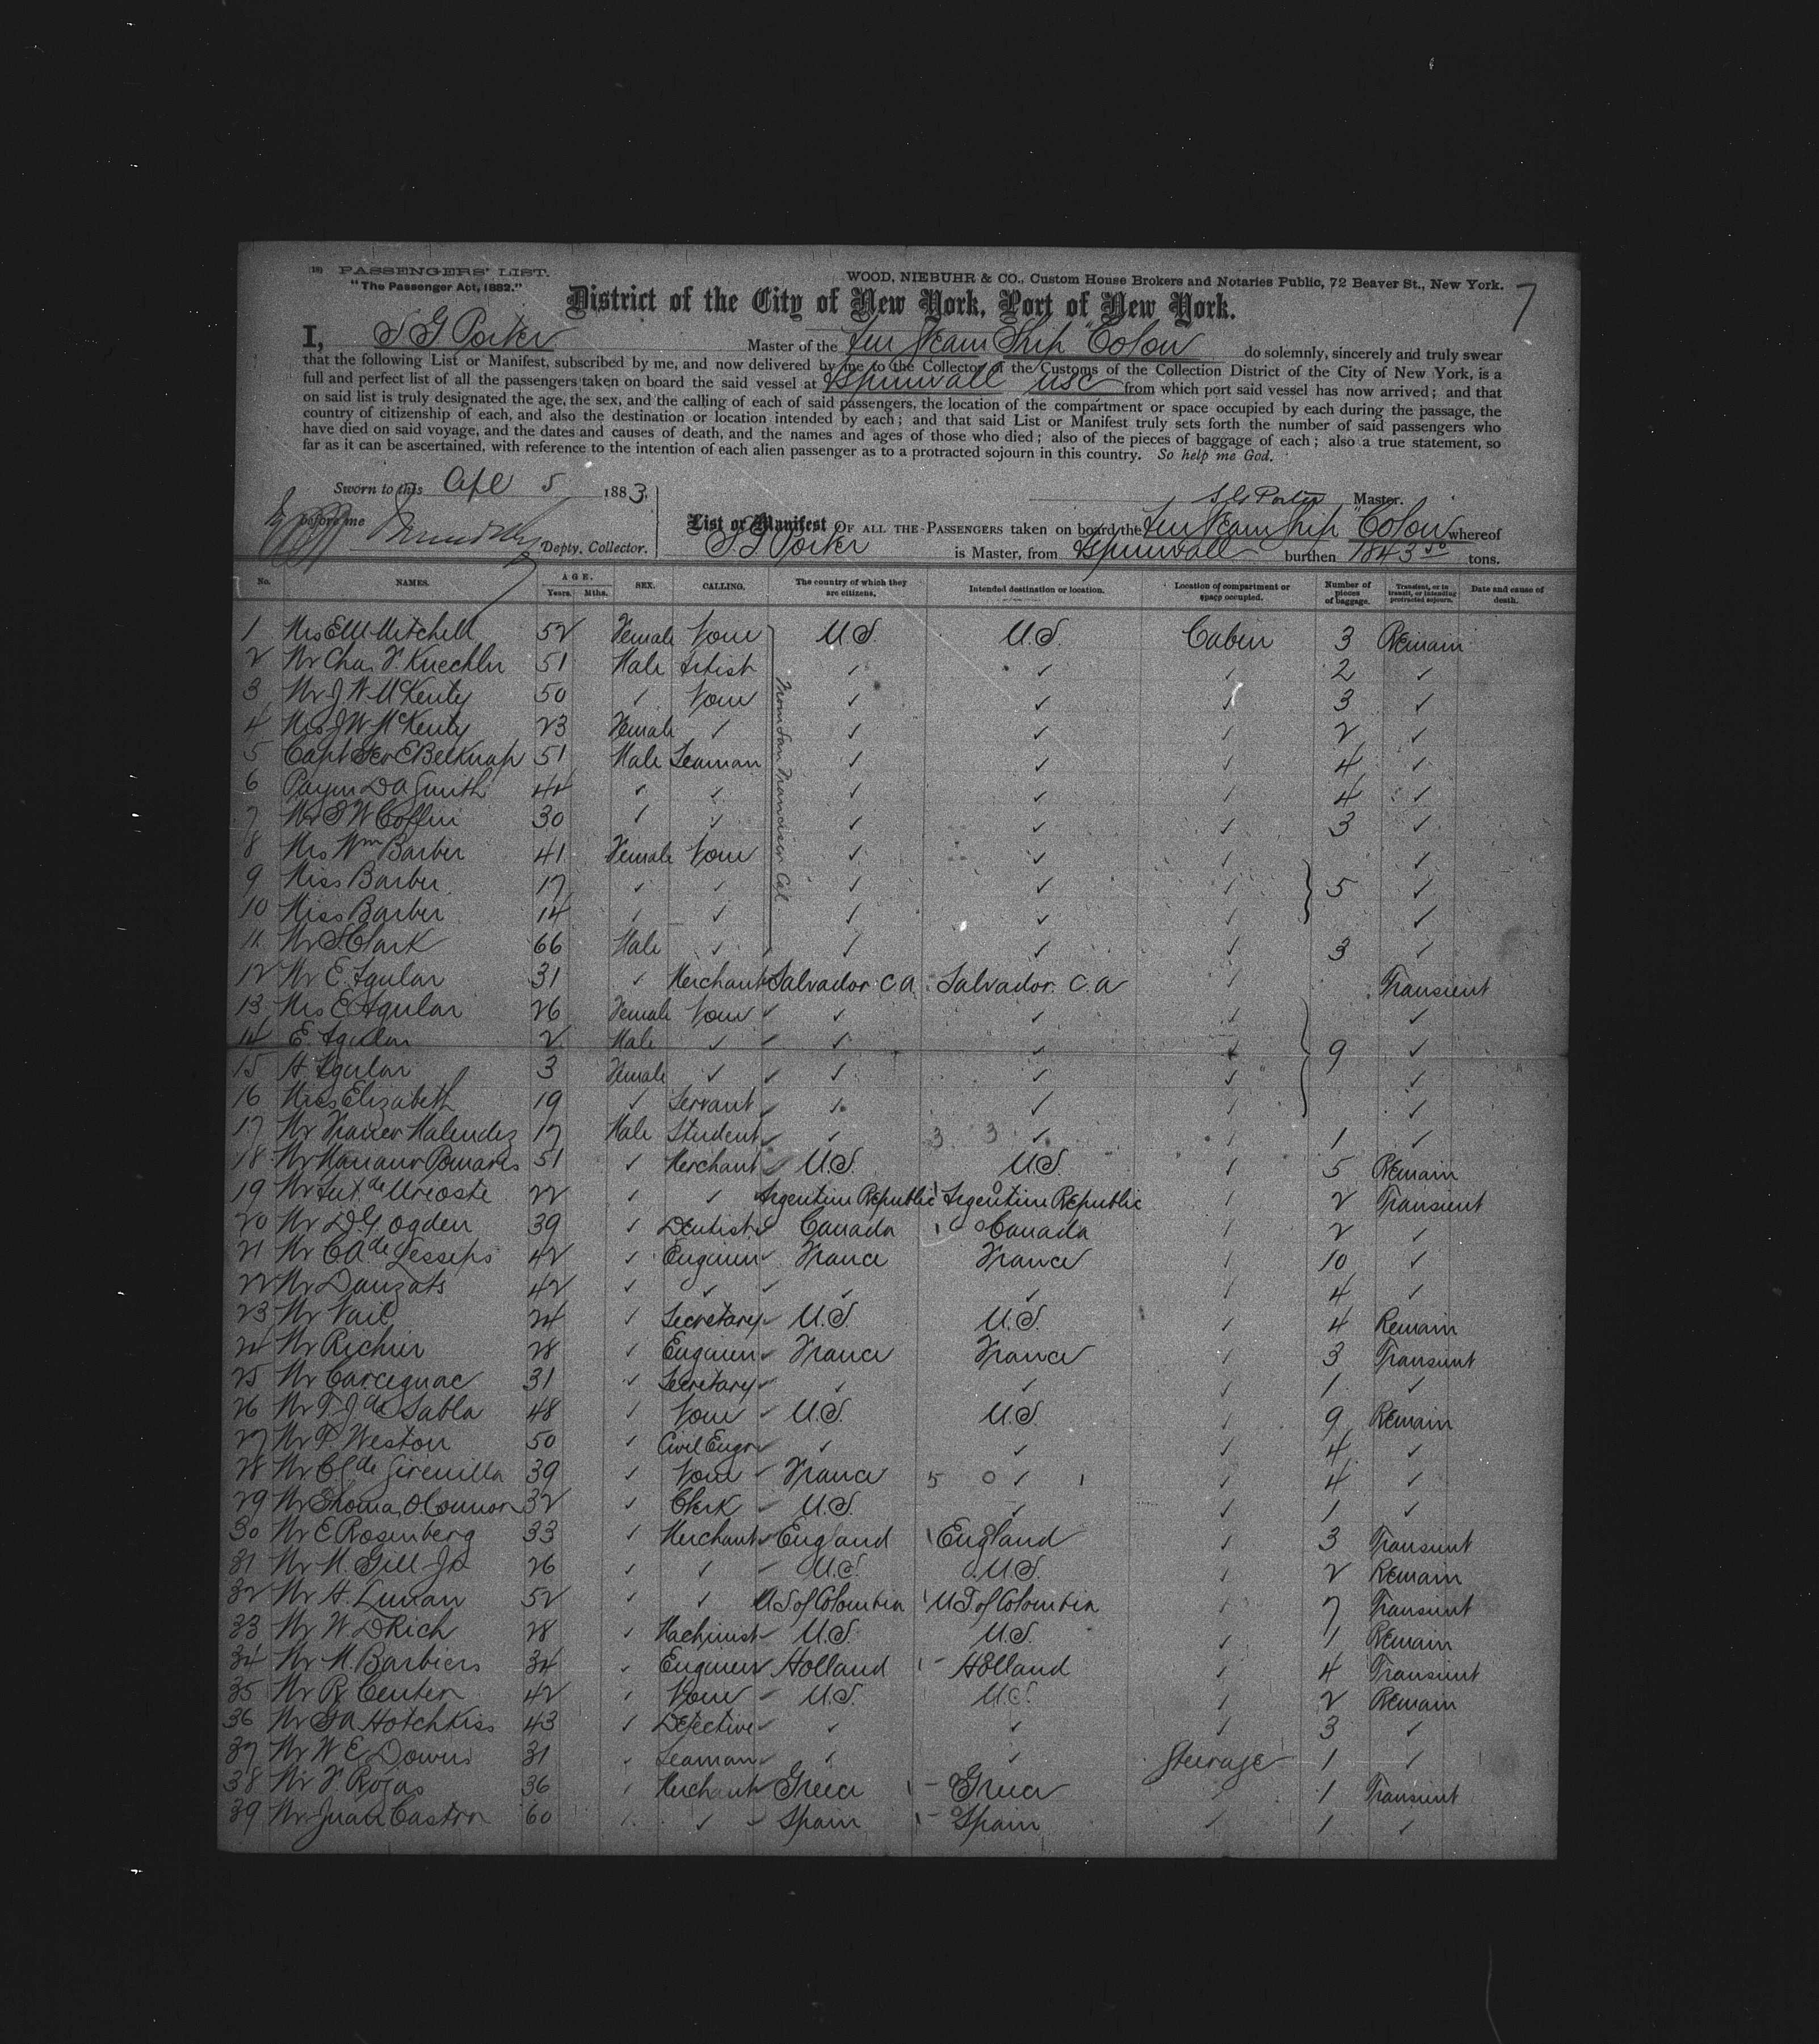 (18) PASSENGERS' LIST.
"The Passenger Act, 1882."
WOOD, NIEBUHR & CO., Custom House Brokers and Notaries Public, 72 Beaver St., New York.
7
District of the City of New York, Port of New York.
I, S G Porter Master of the Am Steam Ship "Colon" do solemnly, sincerely and truly swear
that the following List or Manifest, subscribed by me, and now delivered by me to the Collector of the Customs of the Collection District of the City of New York, is a
full and perfect list of all the passengers taken on board the said vessel at Aspinwall USC from which port said vessel has now arrived; and that
on said list is truly designated the age, the sex, and the calling of each of said passengers, the location of the compartment or space occupied by each during the passage, the
country of citizenship of each, and also the destination or location intended by each; and that said List or Manifest truly sets forth the number of said passengers who
have died on said voyage, and the dates and causes of death, and the names and ages of those who died; also of the pieces of baggage of each; also a true statement, so
far as it can be ascertained, with reference to the intention of each alien passenger as to a protracted sojourn in this country. So help me God.
Sworn to this Apl 5 1883,
S G Porter Master.
before me
Depty. Collector.
List or Manifest OF ALL THE PASSENGERS taken on board the Am Steam Ship "Colon" whereof
S. G Porter is Master, from Aspinwall burthen 1843 50 tons.
No. NAMES. AGE. Years. Mths. SEX. CALLING. The country of which they are citizens. Intended destination or location. Location of compartment or space occupied. Number of pieces of baggage. Transient, or in transit, or intending protracted sojourn. Date and cause of death.
From San Francisco Cal
1 Mrs E M Mitchell 52 Female None U.S. U.S. Cabin 3 Remain
2 Mr Chas F. Kuechler 51 Male Artist ✓ ✓ ✓ 2 ✓
3 Mr J W McKenty 50 ✓ None ✓ ✓ ✓ 3 ✓
4 Mrs J W McKenty 23 Female ✓ ✓ ✓ ✓ 2 ✓
5 Capt Geo E Belknap 51 Male Seaman ✓ ✓ ✓ 4 ✓
6 Paym D A Smith 44 ✓ ✓ ✓ ✓ ✓ 4 ✓
7 Mr S W Coffin 30 ✓ ✓ ✓ ✓ ✓ 3 ✓
8 Mrs Wm Barber 41 Female None ✓ ✓ ✓ ✓
9 Miss Barber 17 ✓ ✓ ✓ ✓ ✓ 5 ✓
10 Miss Barber 14 ✓ ✓ ✓ ✓ ✓ ✓
11 Mr S. Clark 66 Male ✓ ✓ ✓ ✓ 3 ✓
12 Mr E. Agular 31 ✓ Merchant Salvador C.A Salvador C.A ✓ Transient
13 Mrs E Agular 26 Female None ✓ ✓ ✓ ✓
14 E. Agular 2 Male ✓ ✓ ✓ ✓ 9 ✓
15 A. Agular 3 Female ✓ ✓ ✓ ✓ ✓
16 Miss Elizabeth 19 ✓ Servant ✓ ✓ ✓ ✓
17 Mr Malendez 17 Male Student ✓ ✓ ✓ 1 ✓
18 Mr Mariano Pomares 51 ✓ Merchant U.S. U.S. ✓ 5 Remain
19 Mr Ant. de Urioste 22 ✓ ✓ Argentine Republic Argentine Republic ✓ 2 Transient
20 Mr D. G. Ogden 39 ✓ Dentist Canada Canada ✓ 2 ✓
21 Mr C A de Lesseps 42 ✓ Engineer France France ✓ 10 ✓
22 Mr Dauzats 42 ✓ ✓ ✓ ✓ ✓ 4 ✓
23 Mr Vail 24 ✓ Secretary U.S. U.S. ✓ 4 Remain
24 Mr Richier 28 ✓ Engineer France France ✓ 3 Transient
25 Mr Carcegnac 31 ✓ Secretary ✓ ✓ ✓ 1 ✓
26 Mr T. J de Sabla 48 ✓ None U.S. U.S. ✓ 9 Remain
27 Mr P. Weston 50 ✓ Civil Engr ✓ ✓ ✓ 4 ✓
28 Mr C. de 39 ✓ None France ✓ ✓ 4 ✓
29 Mr Thomas O'Connor 32 ✓ Clerk U.S. ✓ ✓ 1 ✓
30 Mr E Rosenberg 33 ✓ Merchant England England ✓ 3 Transient
31 Mr M. Gill Jr 26 ✓ ✓ U.S. U.S. ✓ 2 Remain
32 Mr H. Lunan 52 ✓ ✓ U S of Colombia U S of Colombia ✓ 7 Transient
33 Mr W. D Rich 28 ✓ Machinist U.S. U.S. ✓ 1 Remain
34 Mr M. Barbiers 34 ✓ Engineer Holland Holland ✓ 4 Transient
35 Mr R. Center 42 ✓ None U.S. U.S. ✓ 2 Remain
36 Mr G A Hotchkiss 43 ✓ Detective ✓ ✓ ✓ 3 ✓
37 Mr W E Downs 31 ✓ Seaman ✓ ✓ Steerage 1 ✓
38 Mr F. Rojas 36 ✓ Merchant Greece Greece ✓ 1 Transient
39 Mr Juan Castro 60 ✓ ✓ Spain Spain ✓ 1 ✓